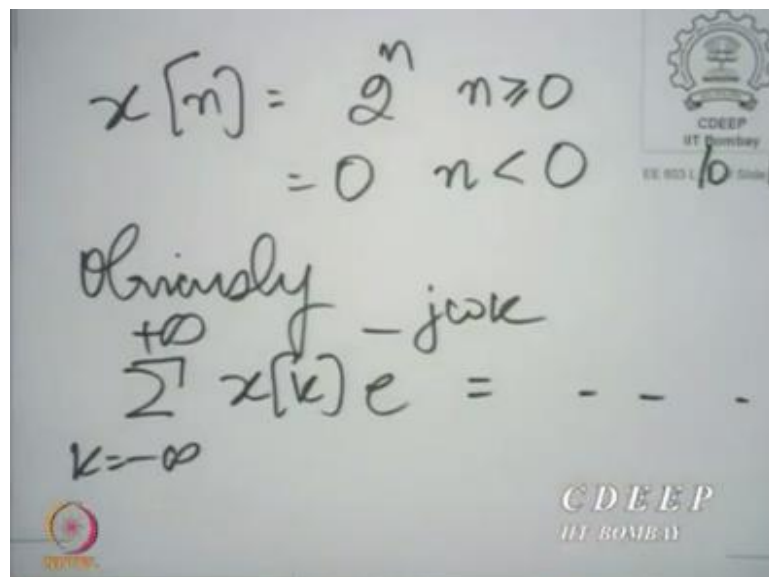 x[n] = 2^n n ≥ 0
= 0 n < 0
CDEEP
IIT Bombay
EE 603 L 10 Slide
Obviously
+∞
Σ x[k] e^{-jωk} = - - -
k=-∞
CDEEP
IIT BOMBAY